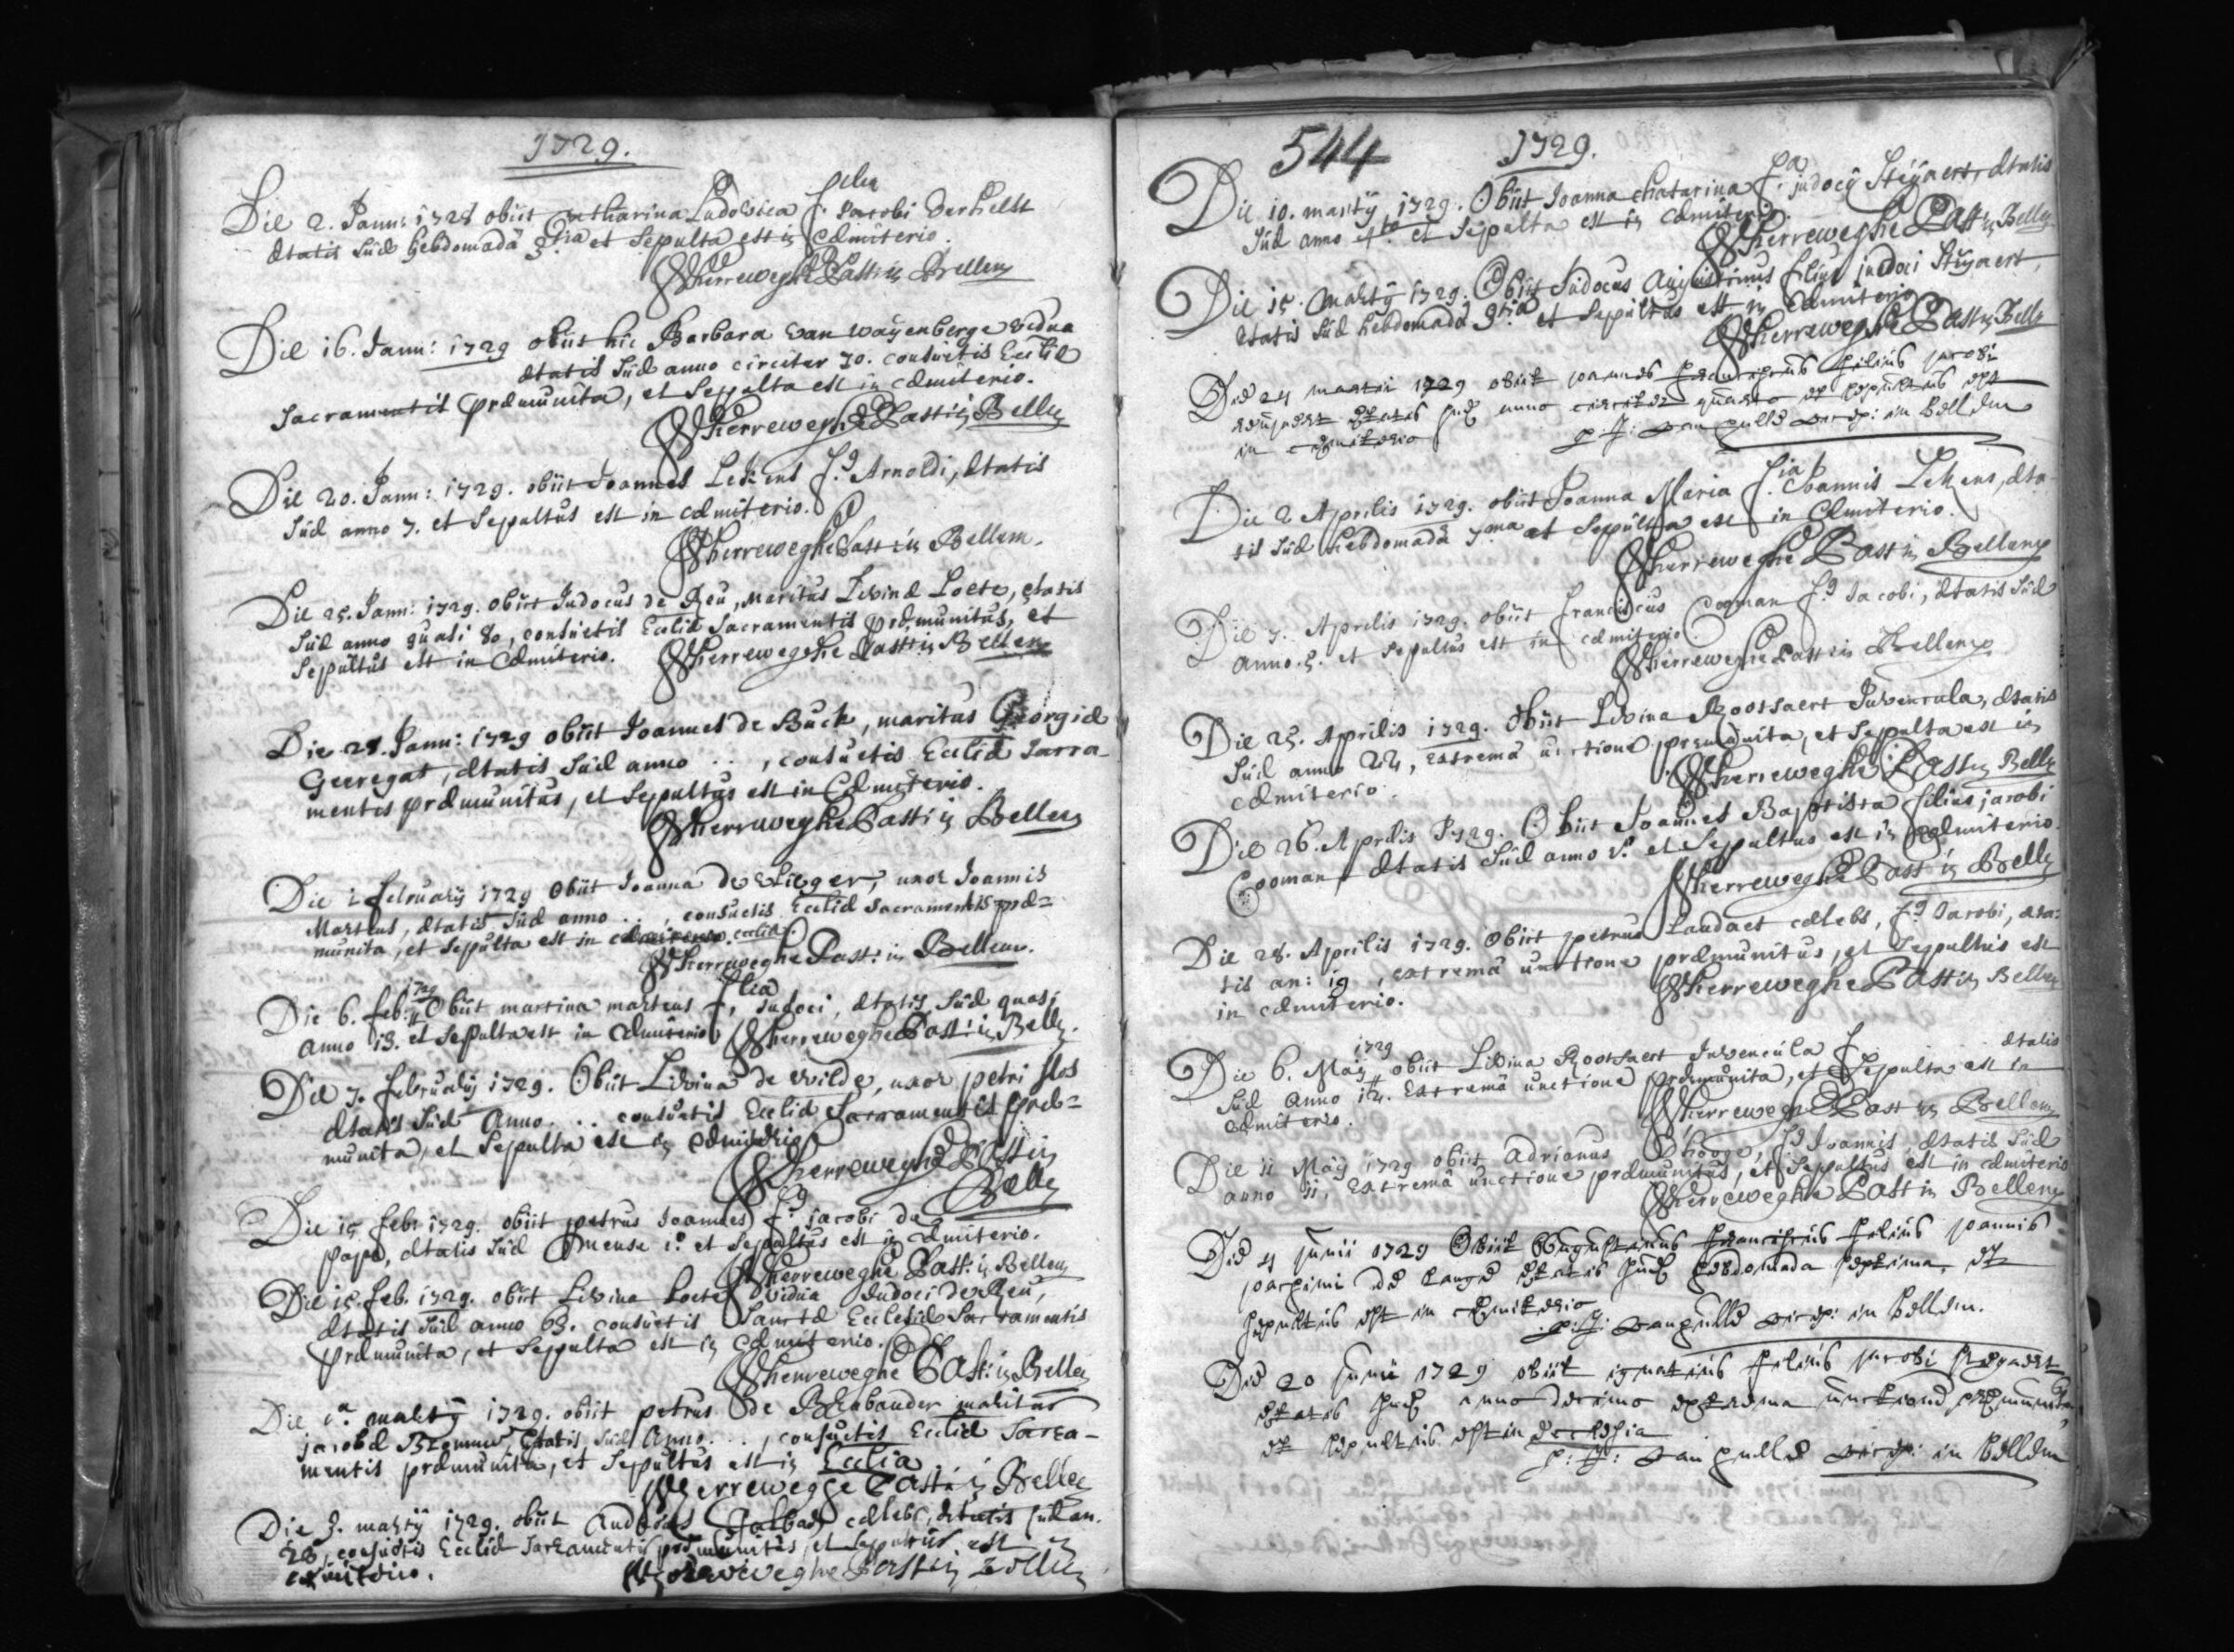 1729.
Die 2. Janu: 1728 obiit Catharina Ludovica f. filia Jacobi verhelst
ætatis suæ hebdomadâ 3tia et sepulta est in cæmiterio.
Vherreweghe Past in Bellem
Die 16. Janu: 1729 obiit hic Barbara van waÿenberge vidua
ætatis suæ anno circiter 70. consuetis Eccliæ
sacramentis præmunita, et sepulta est in cæmiterio.
Vherreweghe Past in Bellem
Die 20. Janu: 1729. obiit Joannes Lekens f.s Arnoldi, ætatis
suæ anno 7. et sepultus est in cæmiterio.
Vherreweghe Past in Bellem.
Die 25. Janu: 1729. obiit Judocus de Reu, maritus Livinæ Loete, ætatis
suæ anno quasi 80, consuetis Eccliæ sacramentis præmunitus, et
sepultus est in Cæmiterio. Vherreweghe Past in Bellem
Die 28. Janu: 1729 obiit Joannes de Buck, maritus Georgiæ
Geeregat, ætatis suæ anno .. , consuetis Eccliæ sacra-
mentis præmunitus, et sepultus est in Cæmiterio.
Vherreweghe Past in Bellem
Die 1 februarÿ 1729 Obiit Joanna de vlieger, uxor Joannis
Martens, ætatis suæ anno .. , consuetis Eccliæ sacramentis præ=
munita, et sepulta est in ecclia.
Vherreweghe Past: in Bellem.
Die 6. feb: 1729 Obiit martina martens f. filia Judoci, ætatis suæ quasi
anno 13. et sepulta est in cæmiterio Vherreweghe Past: in Bellem.
Die 7. februarÿ 1729. Obiit Livina de wilde, uxor petri slos
ætatis suæ Anno... consuetis Eccliæ sacramentis præ=
munita, et sepulta est in cæmiterio
Vherreweghe Past in
Bellem
Die 15 feb: 1729. obiit petrus Joannes f.s jacobi de
pape, ætatis suæ mense 1.º et sepultus est in cæmiterio.
Vherreweghe Past: in Bellem
Die 15. feb. 1729. obiit Livina Loete vidua Judoci de Reu,
ætatis suæ anno 63. consuetis Sanctæ Ecclesiæ sacramentis
præmunita, et sepulta est in cæmiterio.
Vherreweghe Past: in Bellem
Die 1.a martÿ 1729. obiit petrus de Brabander maritus
jacobæ ætatis suæ Anno... , consuetis Eccliæ sacra-
mentis præmunitus, et sepultus est in Ecclia
Vherrewegge Past: in Bellem
Die 3. martÿ 1729. obiit Andreas cælebs, ætatis suæ an.
28, consuetis Eccliæ sacramentis præmunitus, et sepultus est in
cæmiterio. Vherreweghe Past in Bellem
544 1729.
Die 10. martÿ 1729. Obiit Joanna Chatarina f.a judoci Steÿaert, ætatis
suæ anno 4to et sepulta est in cæmiterio.
Vherreweghe Past in Bellem
Die 15. martÿ 1729. Obiit Judocus Augustinus filius judoci Steÿaert,
ætatis suæ hebdomadâ 3tia et sepultus est in cæmiterio
Vherreweghe Past in Bellem
Die 24 martii 1729 obiit joannes franciscus filius jacobi
ætatis suæ anno circiter quarto et sepultus est
in cæmiterio p: f: van pulle vicep: in bellem
Die 2 Aprilis 1729. obiit Joanna Maria f.ia Joannis Lekens, æta-
tis suæ hebdomadâ 7ma et sepulta est in Cæmiterio.
Vherreweghe Past in Bellem
Die 7. Aprilis 1729. obiit franciscus Cooman f.s Jacobi, ætatis suæ
anno. 5. et sepultus est in cæmiterio.
Vherreweghe Past in Bellem
Die 25. Aprilis 1729. obiit Livina Rootsaert Juvencula, ætatis
suæ anno 22, extremâ unctione præmunita, et sepulta est in
cæmiterio. Vherreweghe Past in Bellem
Die 26. Aprilis 1729. Obiit Joannes Baptista filius jacobi
Cooman ætatis suæ anno et sepultus est in cæmiterio.
Vherreweghe Past in Bellem
Die 28. Aprilis 1729. Obiit petrus Landaet cælebs, f.s Jacobi, æta-
tis an: 19, extremâ unctione præmunitus, et sepultus est
in cæmiterio. Vherreweghe Past in Bellem
Die 6. Maÿ 1729 obiit Livina Rootsaert Juvencula f. ætatis
suæ Anno 12. Extremâ unctione præmunita, et sepulta est in
cæmiterio. Vherreweghe Past in Bellem
Die 11 Maÿ 1729 obiit Adrianus Dhooge, f.s Joannis ætatis suæ
anno 11, extremâ unctione præmunitus, et sepultus est in cæmiterio
Vherreweghe Past in Bellem
Die 4 junii 1729 Obiit Augustinus franciscus filius joannis
joachimi de lange ætatis suæ hebdomada septima, et
sepultus est in cæmiterio
p: f: van pulle vicep: in bellem.
Die 20 junii 1729 obiit ignatius filius jacobi
ætatis suæ anno decimo extrema unctione præmunitus,
et sepultus est in ecclesia
p: f: van pulle vicep: in bellem